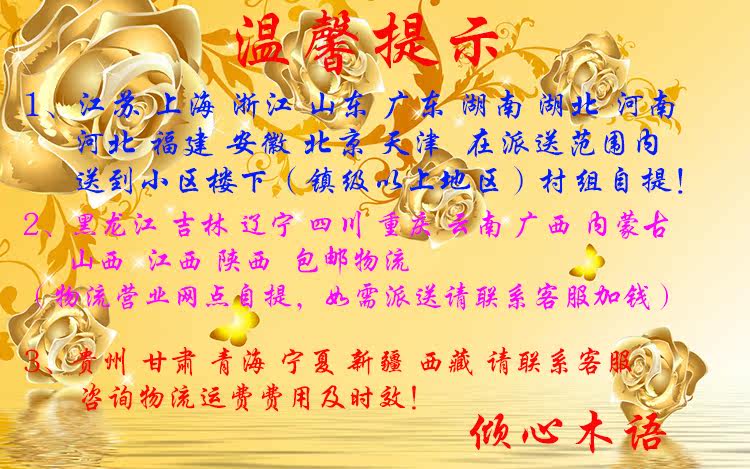 温馨提示
1、江苏 上海 浙江 山东 广东 湖南 湖北 河南
河北 福建 安徽 北京 天津 在派送范围内
送到小区楼下（镇级以上地区）村组自提！
2、黑龙江 吉林 辽宁 四川 重庆 云南 广西 内蒙古
山西 江西 陕西 包邮物流
（物流营业网点自提，如需派送请联系客服加钱）
3、贵州 甘肃 青海 宁夏 新疆 西藏 请联系客服
咨询物流运费费用及时效！
倾心木语